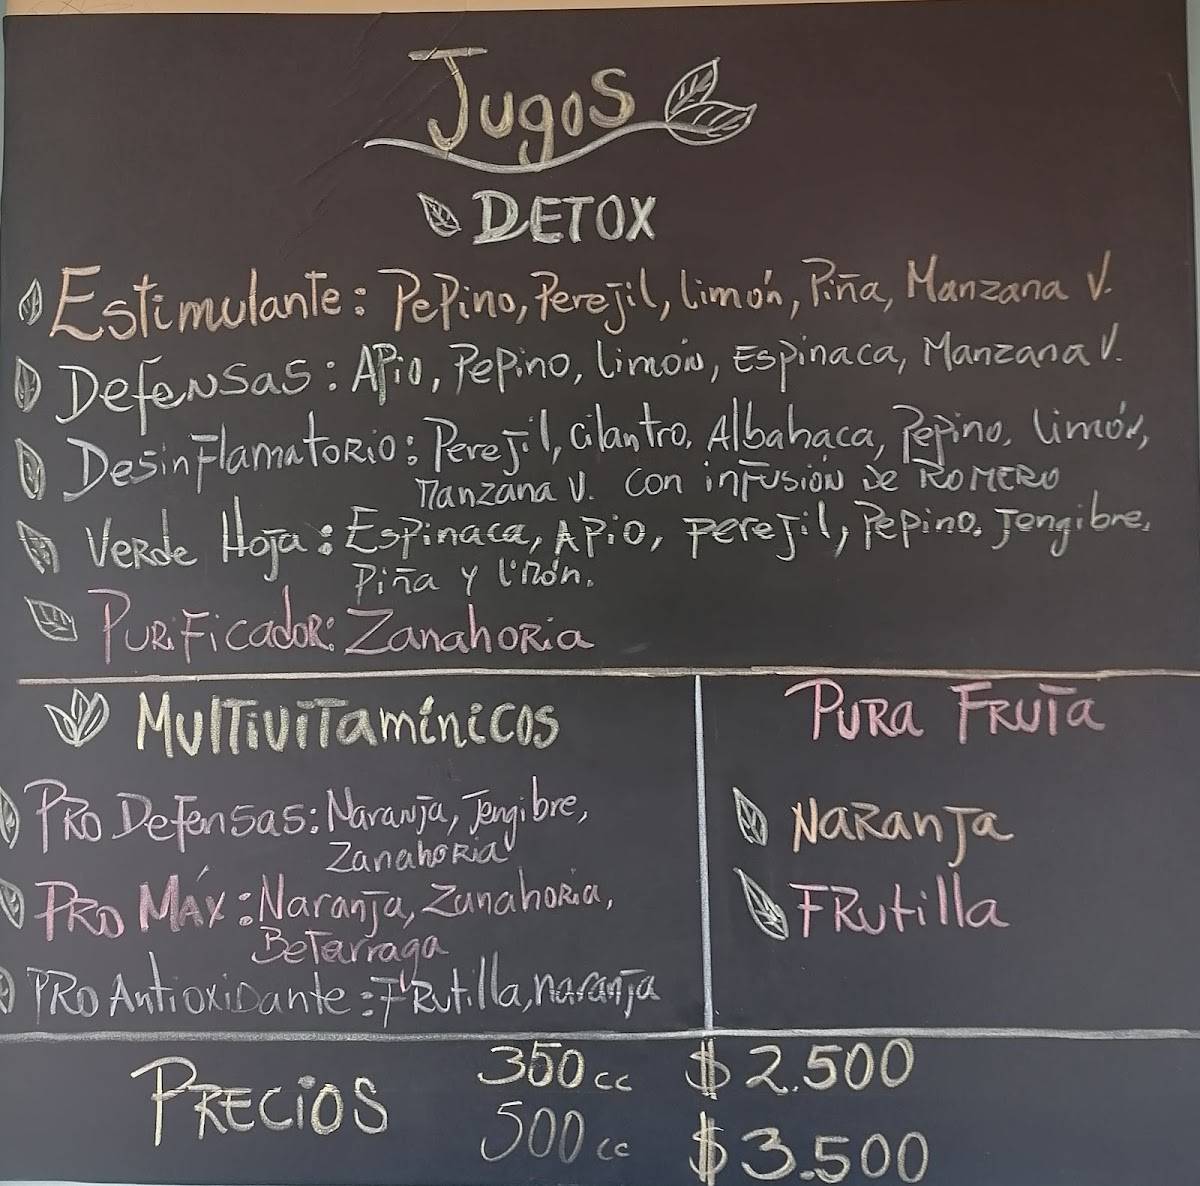 Jugos
DETOX
Estimulante: Pepino, Perejil, limón, Piña, Manzana V.
Defensas: Apio, Pepino, limón, Espinaca, Manzana V.
Desinflamatorio: Perejil, cilantro, Albahaca, Pepino, limón,
Manzana V. con infusión de ROMERO
Verde Hoja: Espinaca, Apio, perejil, Pepino, Jengibre,
Piña y limón.
Purificador: Zanahoria
Multivitamínicos
Pro Defensas: Naranja, Jengibre,
Zanahoria
Pro Máx: Naranja, Zanahoria,
Betarraga
Pro Antioxidante: Frutilla, naranja
PURA FRUTA
Naranja
Frutilla
PRECIOS
350 cc $2.500
500 cc $3.500